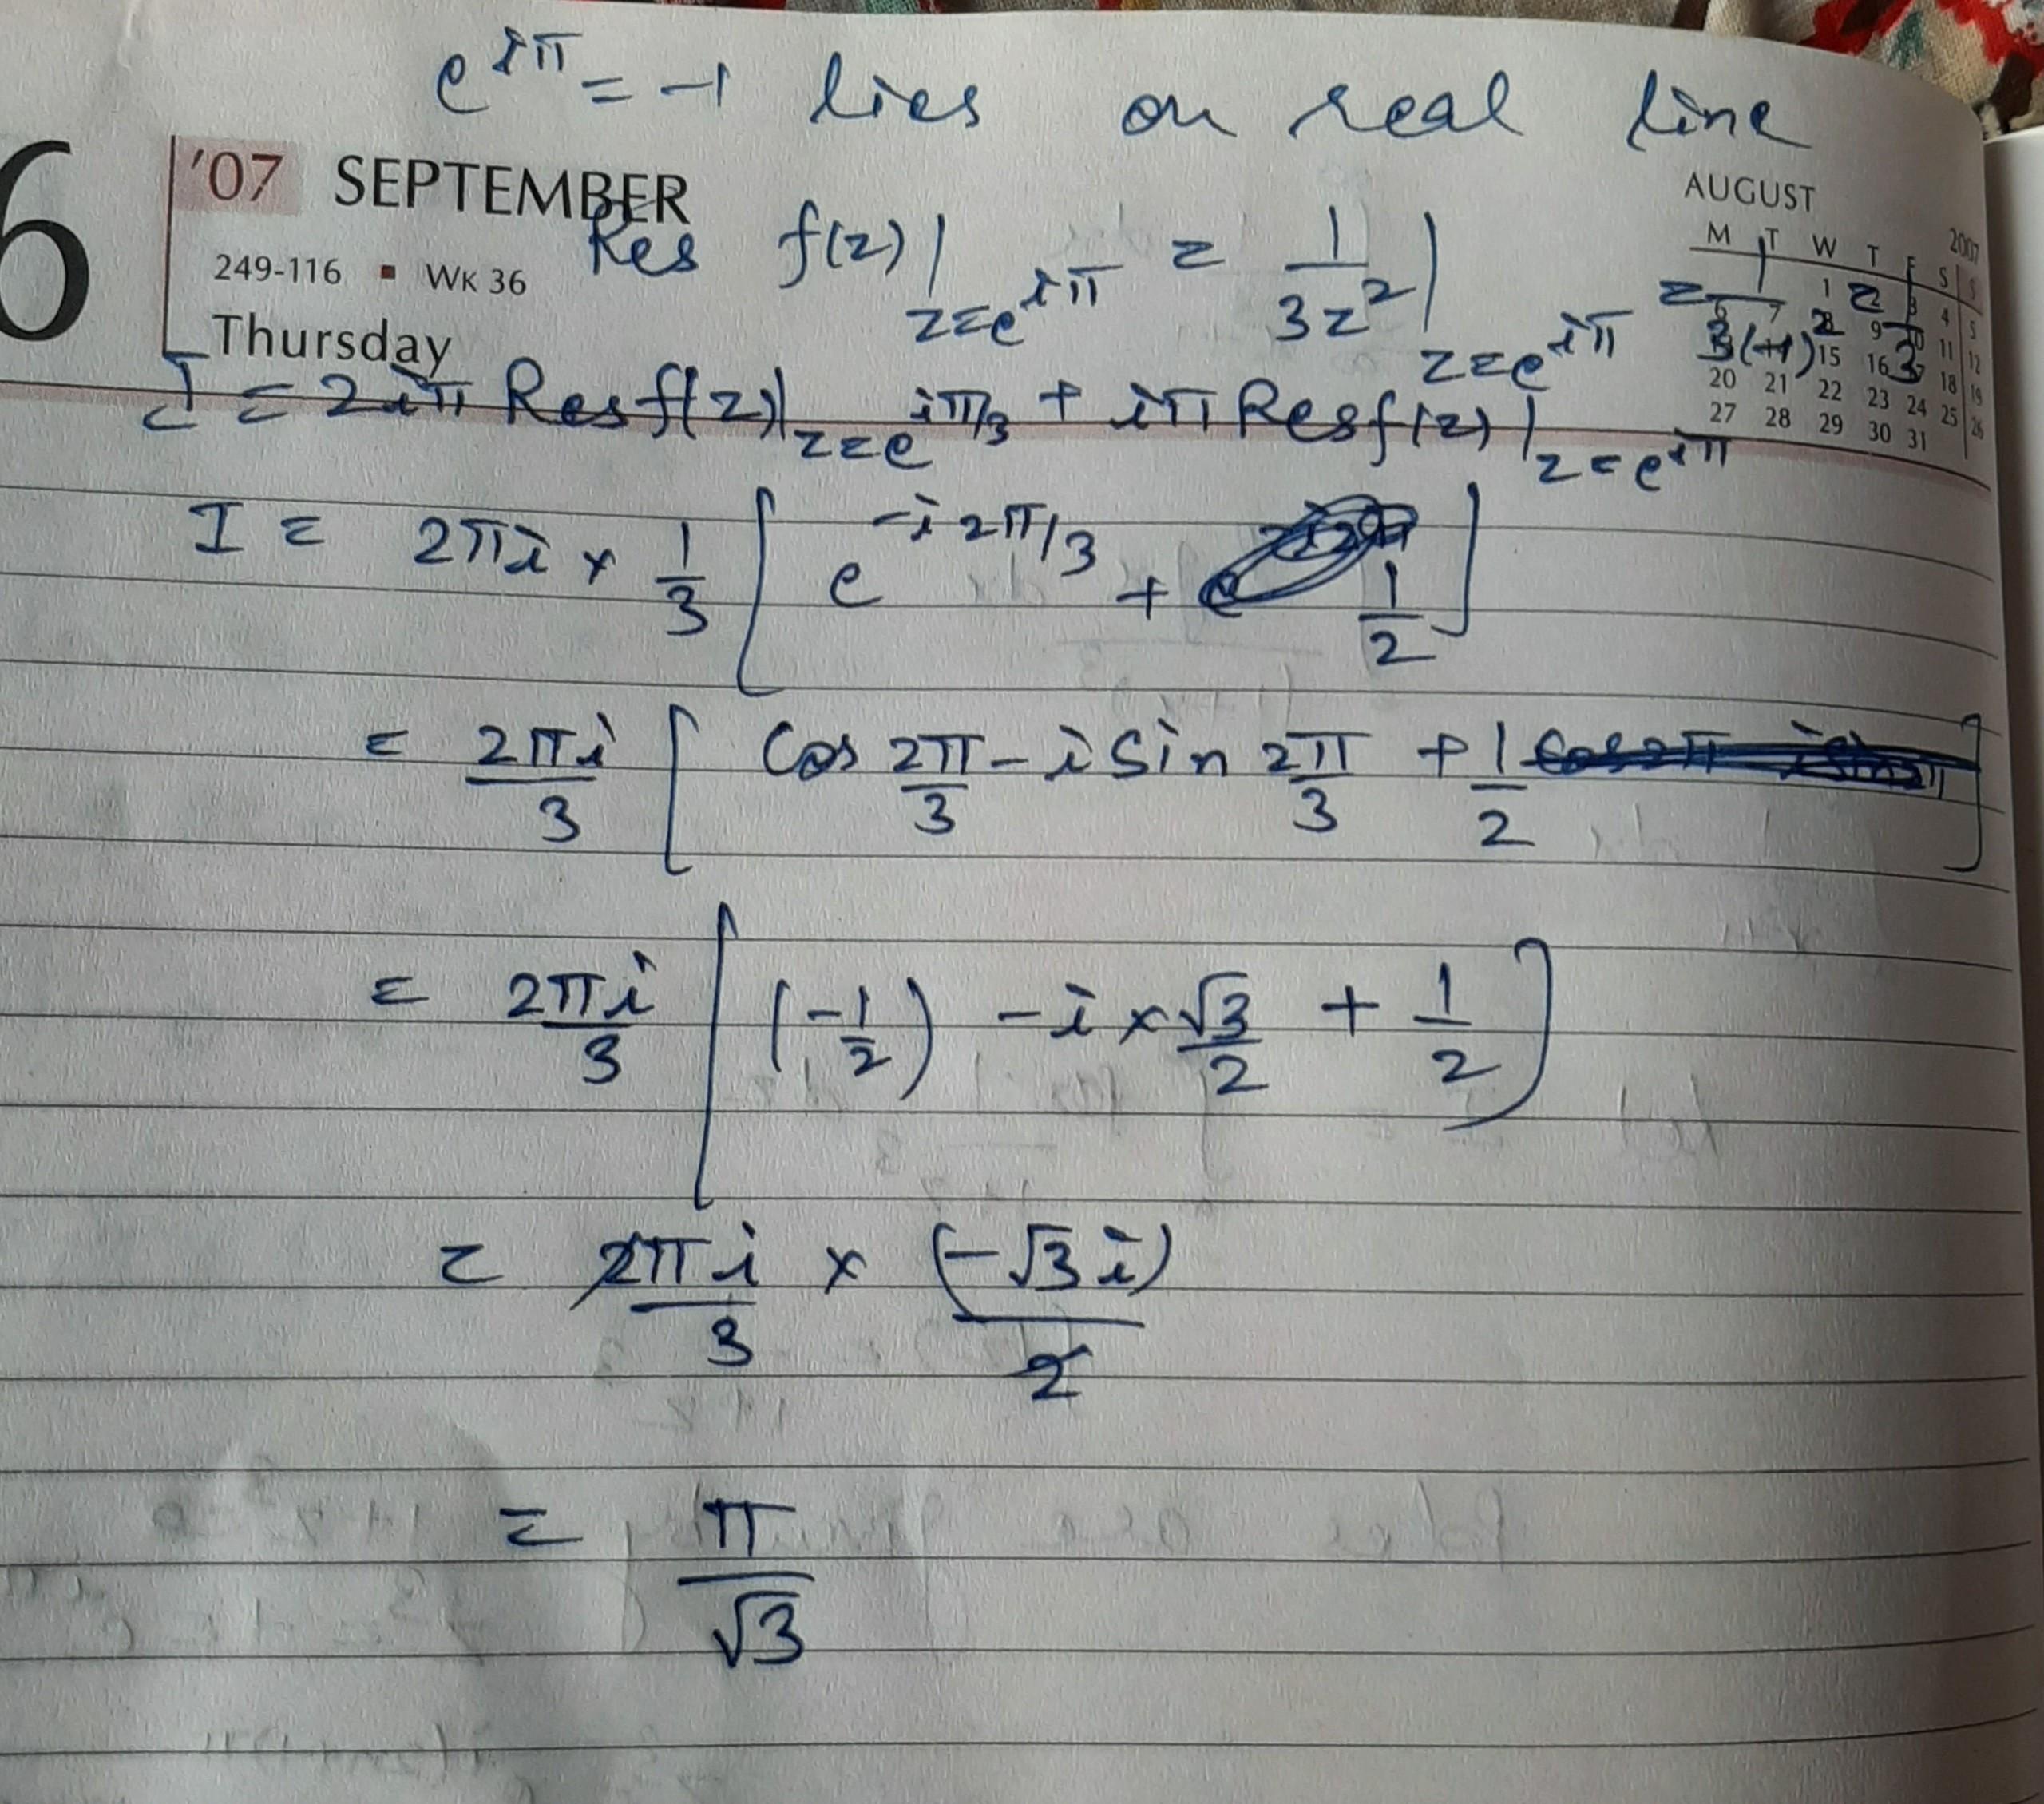 e^{iπ} = -1 lies on real line
6
'07 SEPTEMBER
249-116 ▪ WK 36
Thursday
AUGUST 2007
M T W T F S S
1 2 3 4 5
6 7 8 9 10 11 12
15 16 17 18 19
20 21 22 23 24 25 26
27 28 29 30 31
Res f(z)|_{z=e^{iπ}} = 1/3z^2|_{z=e^{iπ}} = 1/3(-1)^2 = 1/3
I = 2iπ Res f(z)|_{z=e^{iπ/3}} + iπ Res f(z)|_{z=e^{iπ}}
I = 2πi × 1/3 [ e^{-i2π/3} + 1/2 ]
= 2πi/3 [ Cos 2π/3 - i Sin 2π/3 + 1/2 ]
= 2πi/3 [ (-1/2) - i × √3/2 + 1/2 ]
= 2πi/3 × (-√3 i)/2
= π/√3